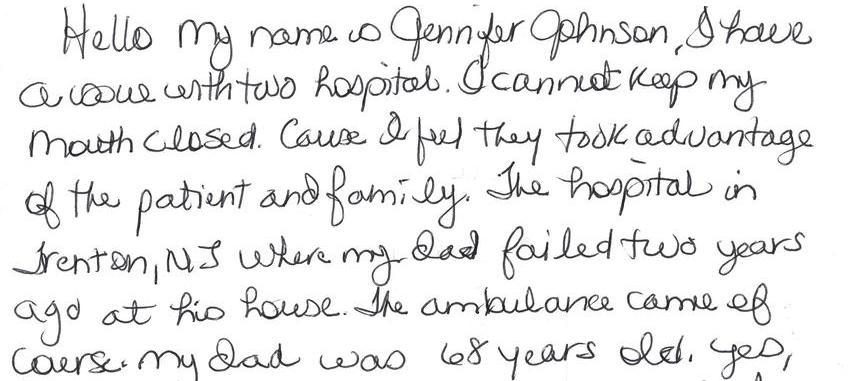 Hello my name is Jennifer Johnson, I have
a issue with two hospital. I cannot keep my
mouth closed. Cause I feel they took advantage
of the patient and family. The hospital in
Trenton, NJ where my dad failed two years
ago at his house. The ambulance came of
course. My dad was 68 years old. Yes,